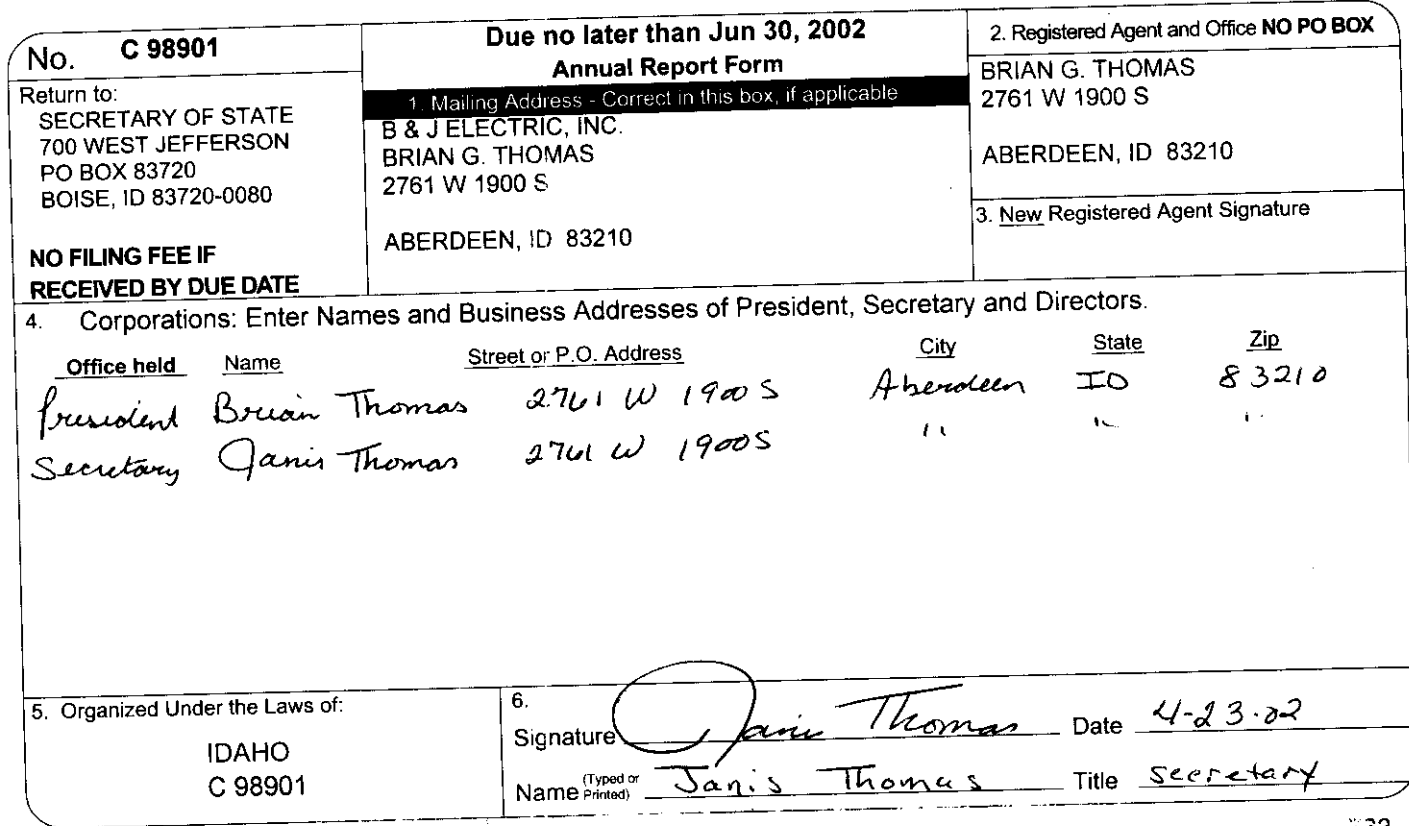 No. C 98901
Return to:
SECRETARY OF STATE
700 WEST JEFFERSON
PO BOX 83720
BOISE, ID 83720-0080
NO FILING FEE IF
RECEIVED BY DUE DATE
Due no later than Jun 30, 2002
Annual Report Form
1. Mailing Address - Correct in this box, if applicable
B & J ELECTRIC, INC.
BRIAN G. THOMAS
2761 W 1900 S
ABERDEEN, ID 83210
2. Registered Agent and Office NO PO BOX
BRIAN G. THOMAS
2761 W 1900 S
ABERDEEN, ID 83210
3. New Registered Agent Signature
4. Corporations: Enter Names and Business Addresses of President, Secretary and Directors.
Office held Name Street or P.O. Address City State Zip
President Brian Thomas 2761 W 1900 S Aberdeen ID 83210
Secretary Janis Thomas 2761 W 1900S " " "
5. Organized Under the Laws of:
IDAHO
C 98901
6.
Signature Janis Thomas Date 4-23-02
Name (Typed or Printed) Janis Thomas Title secretary